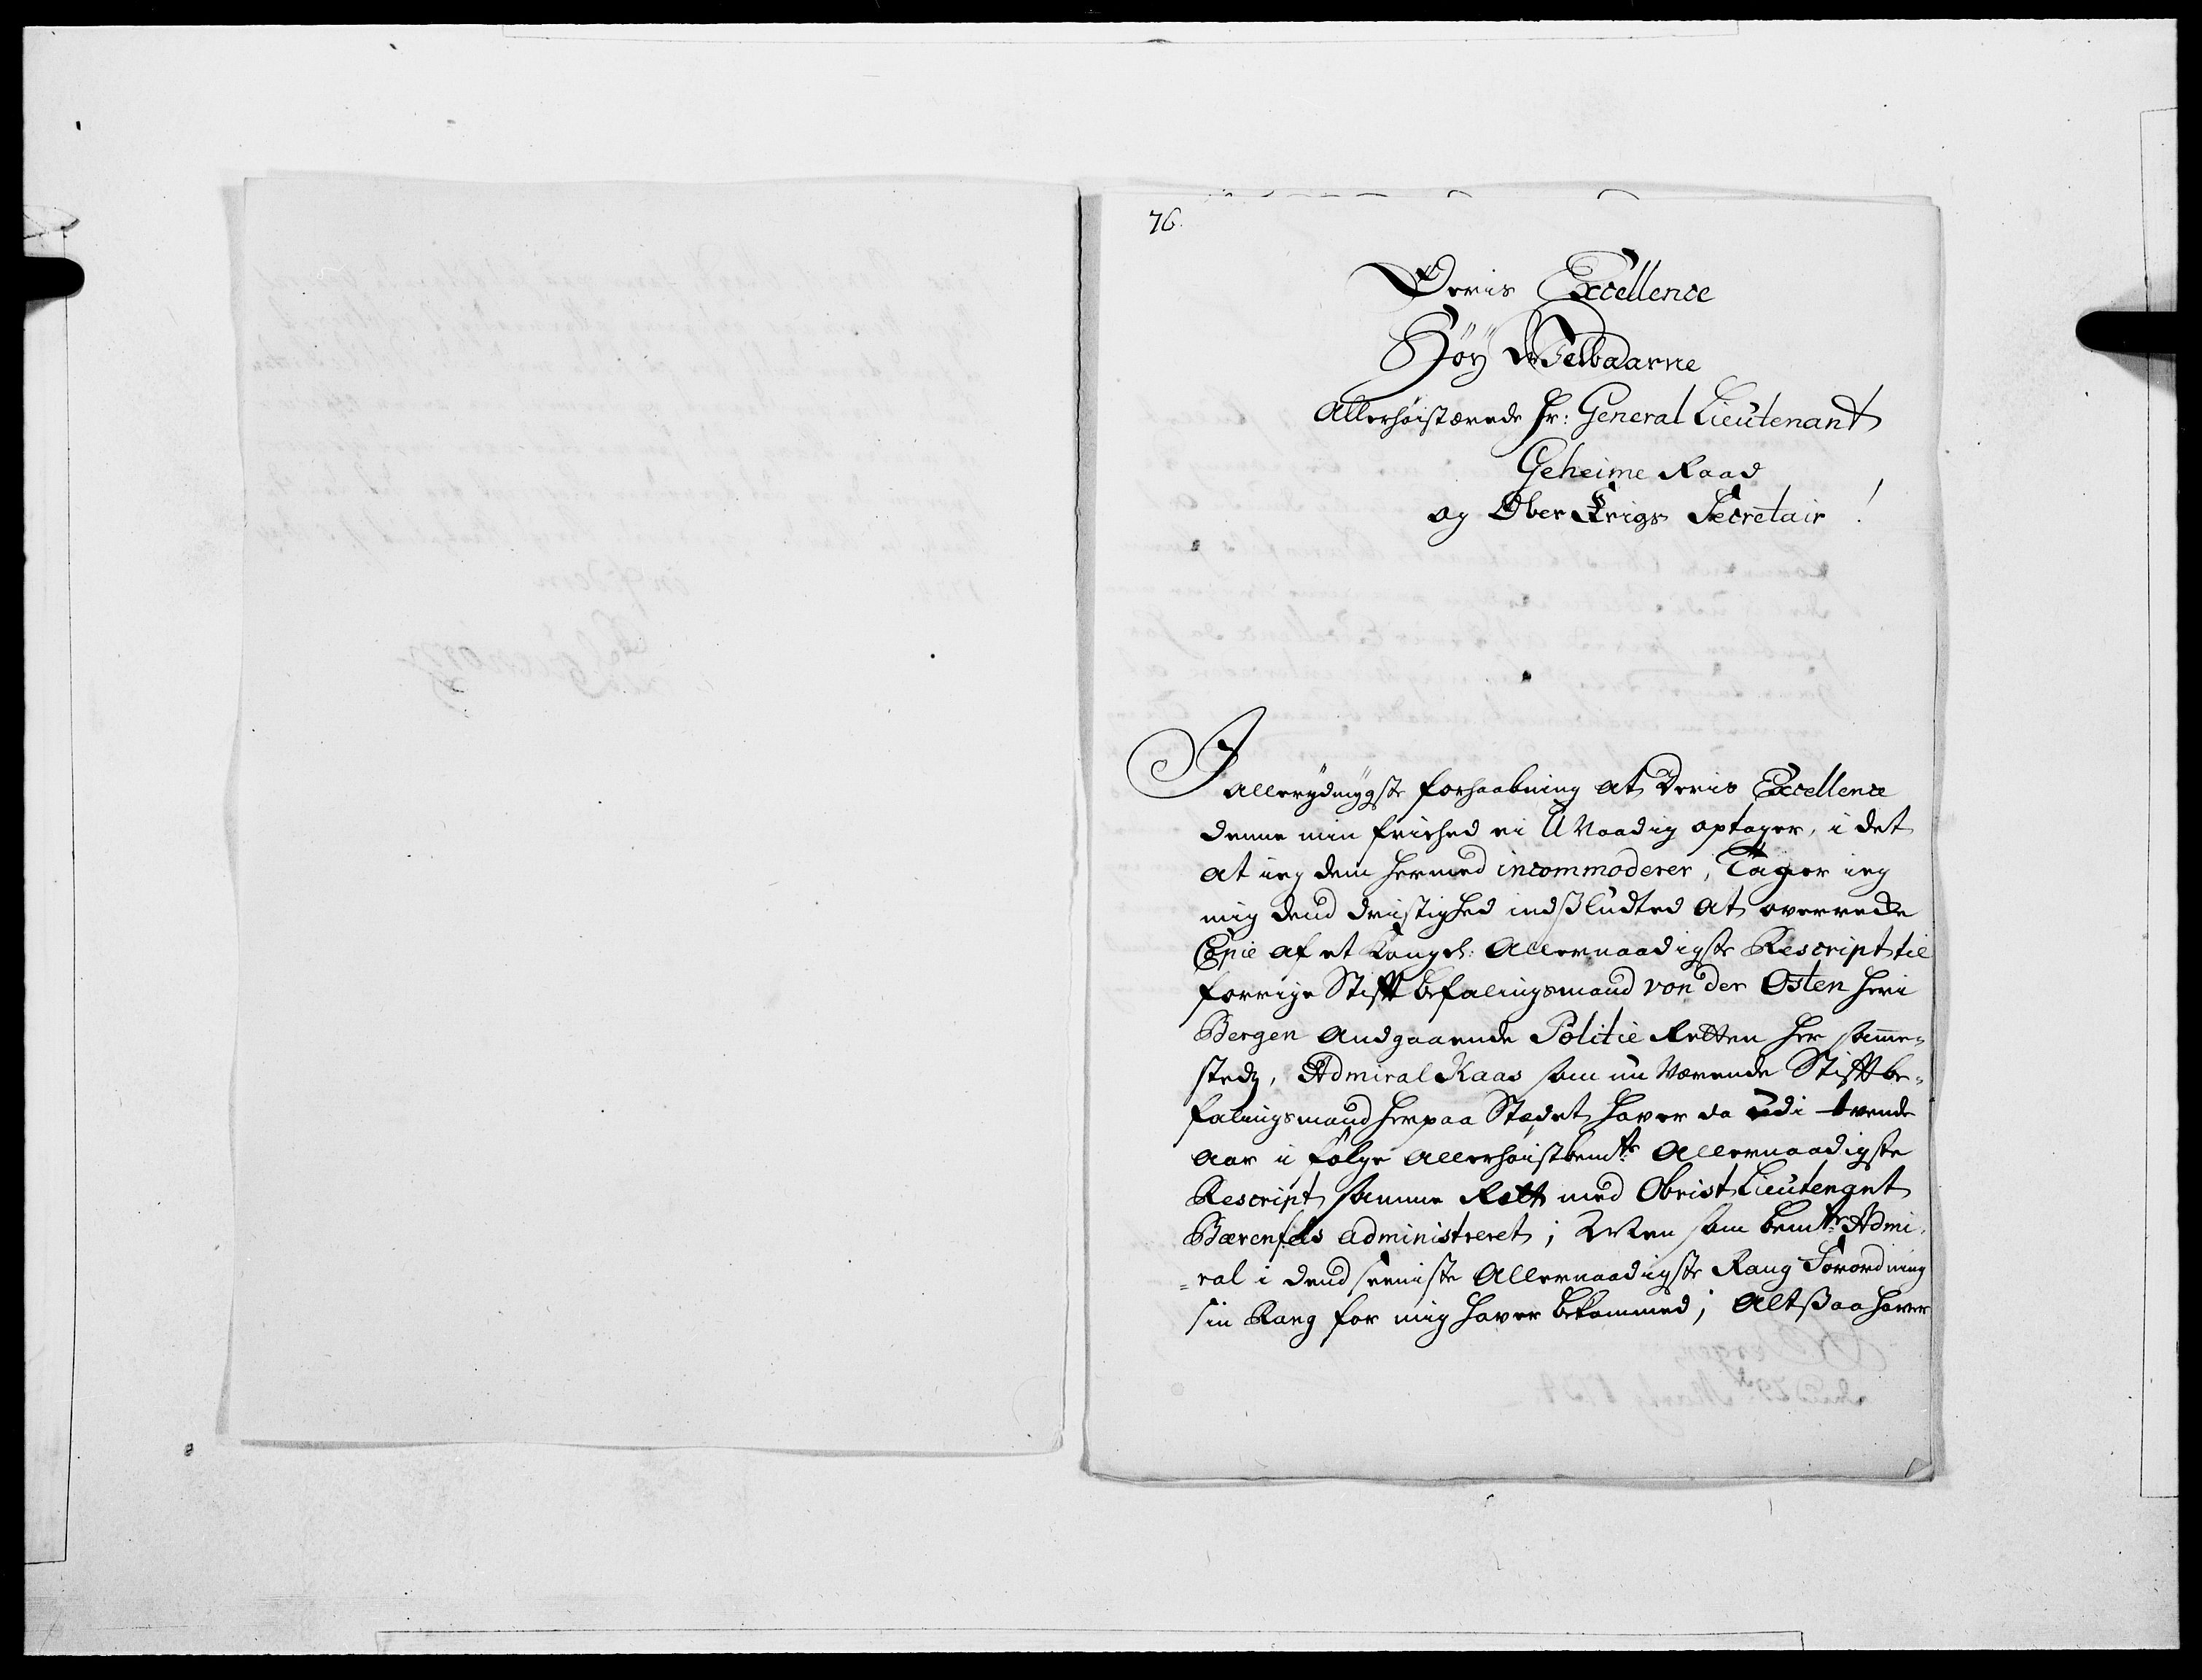 76.
Deris Excellence
Höy Welbaarne
Allerhöistærede Hr: General Lieutenant
Geheime Raad
og Ober Krigs Secretair !
I allerydmygste forhaabning at Deris Excellence
denne min friehed ei UNaadig optager, i det
at ieg dem hermed incommoderer, Tager ieg
mig dend dristighed indslutted at overrecke
Copie af et Kongel: Allernaadigste Rescript til
forrige Stiftbefalingsmand von der Osten her i
Bergen andgaaende Politie Retten her samme-
steds, Admiral Kaas som nu Værende Stiftbe-
falingsmand her paa Stedet haver da udi tvende
Aar i følge Allerhöistbemte Allernaadigste
Rescript samme Rett med Obrist Lieutenant
Bærenfels administreret; Men som bemte Admi-
-ral i dend seeniste Allernaadigste Rang Forordning
sin Rang for mig haver bekommed; Altsaa haver